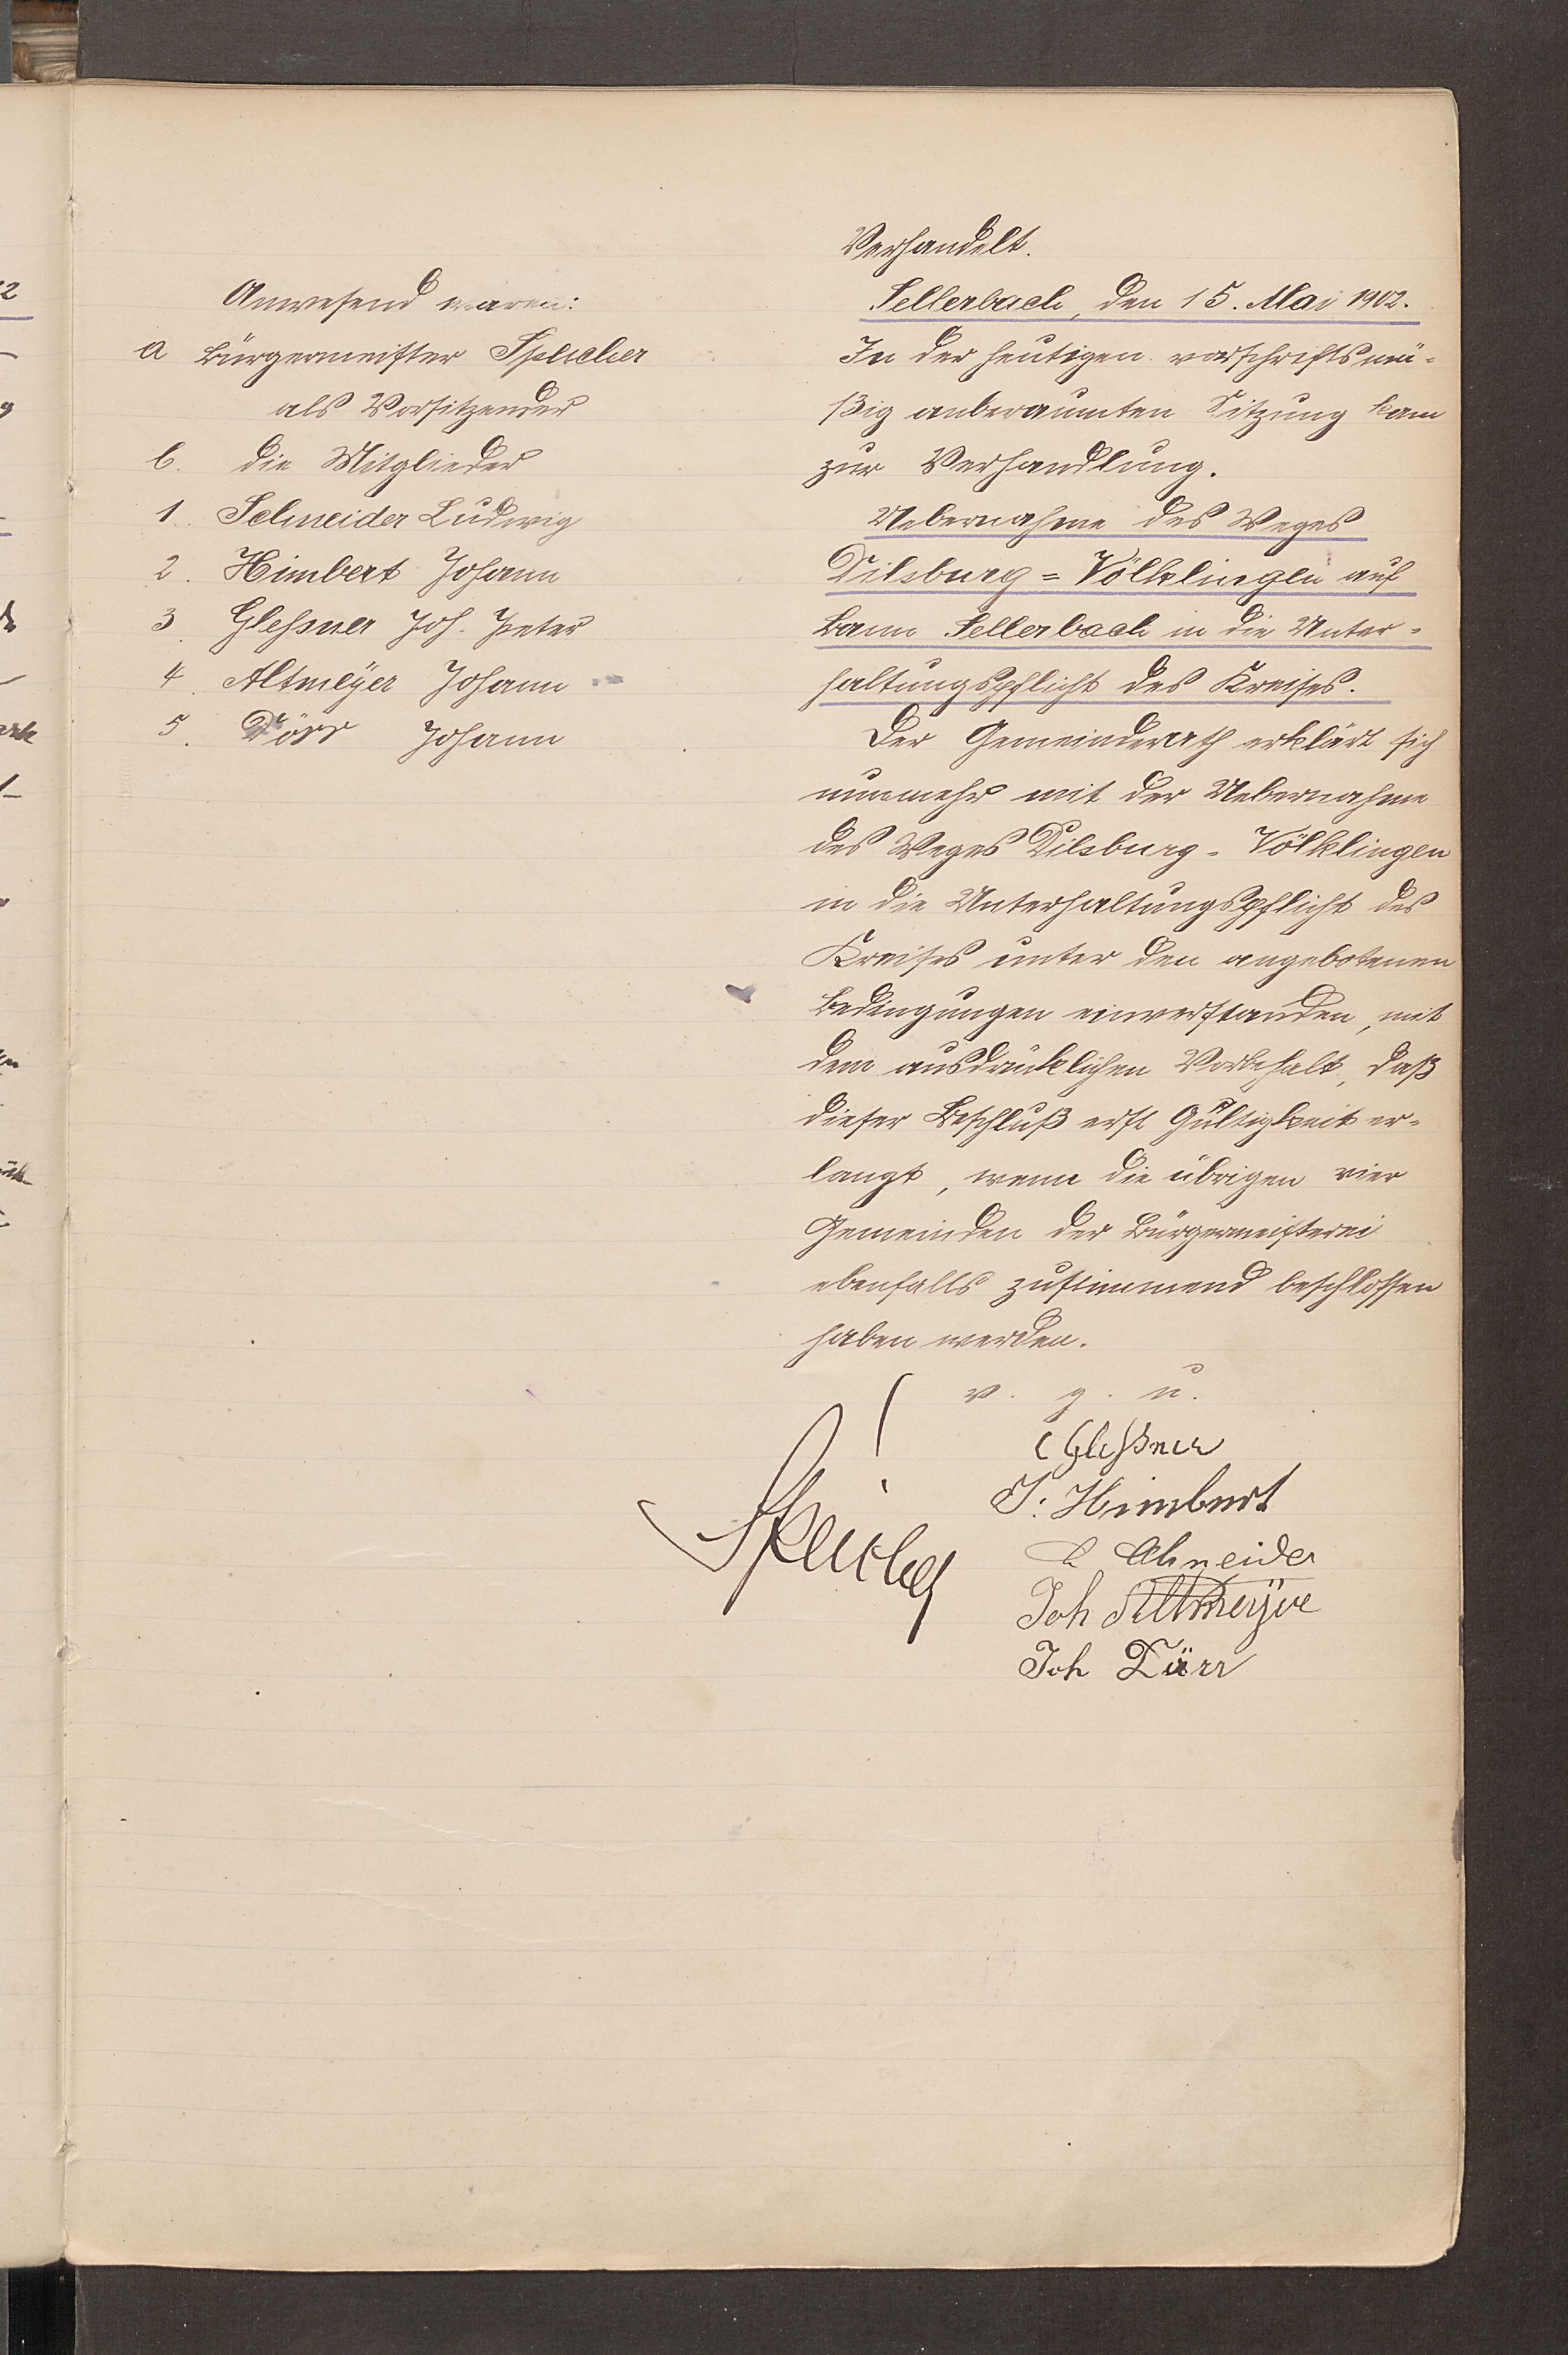 Anwesend waren:
a Bürgermeister Speicher
als Vorsitzender
b. die Mitglieder
1. Schneider Ludwig
2. Himbert Johann
3. Gleßner Joh. Peter
4. Altmeÿer Johann
5. Dörr Johann
Verhandelt.
Sellerbach, den 15. Mai 1902.
In der heutigen vorschriftsmä-
ßig anberaumten Sitzung kam
zur Verhandlung.
Uebernahme des Weges
Dilsburg=Völklingen auf
Bann Sellerbach in die Unter-
haltungspflicht des Kreises.
Der Gemeinderath erklärt sich
nunmehr mit der Uebernahme
des Weges Dilsburg-Völklingen
in die Unterhaltungspflicht des
Kreises unter den angebotenen
Bedingungen einverstanden, mit
dem ausdrücklichen Vorbehalt, daß
dieser Beschluß erst Gültigkeit er-
langt, wenn die übrigen vier
Gemeinden der Bürgermeisterei
ebenfalls zustimmend beschlossen
haben werden.
v. g. u.
Gleßner
J. Himbert
L Schneider
Joh Altmeÿer
Joh Dörr
Speicher